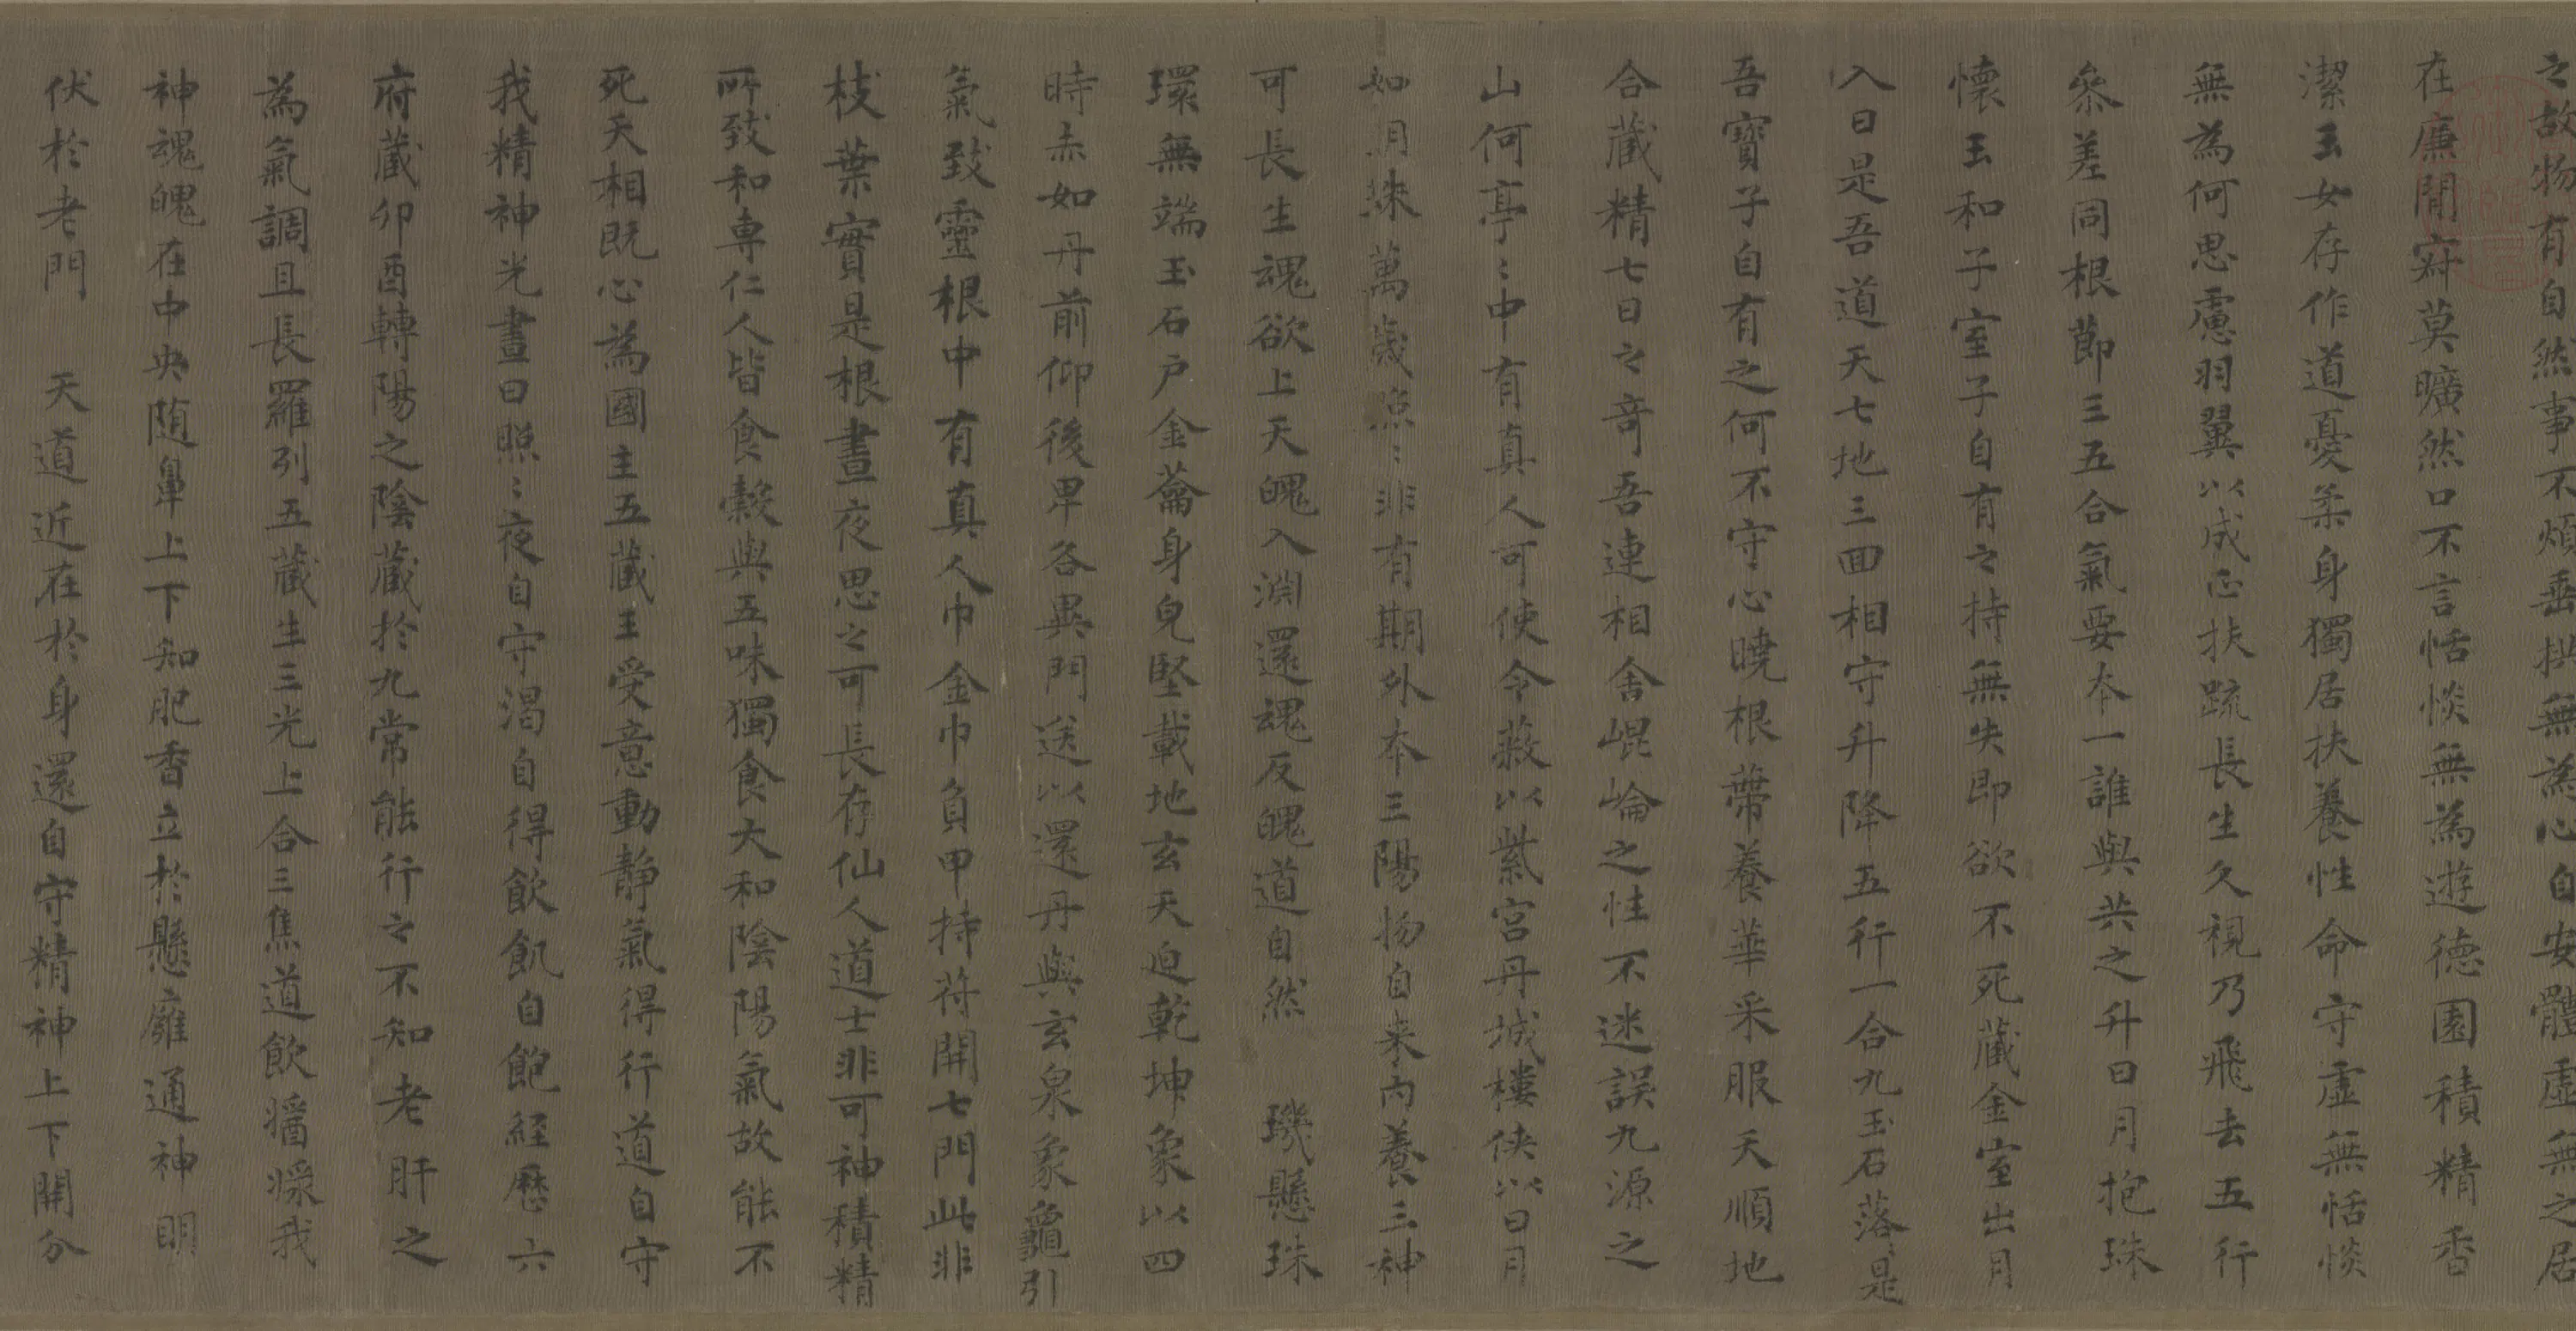 之故物有自然事不煩垂拱無為心自安體虛無之居
在廉閒寂莫曠然口不言恬惔無為遊德園積精香
潔玉女存作道憂柔身獨居扶養性命守虛無恬惔
無為何思慮羽翼以成正扶疏長生久視乃飛去五行
參差同根節三五合氣要本一誰與共之升日月抱珠
懷玉和子室子自有之持無失即欲不死藏金室出月
入日是吾道天七地三回相守升降五行一合九玉石落〻是
吾寶子自有之何不守心曉根蔕養華采服天順地
合藏精七日之奇吾連相舍崐崘之性不迷誤九源之
山何亭〻中有真人可使令蔽以紫宮丹城樓俠以日月
如明珠萬歲照〻非有期外本三陽物自来內養三神
可長生魂欲上天魄入淵還魂反魄道自然 璣懸珠
環無端玉石户金蘥身皃堅載地玄天迫乾坤象以四
時赤如丹前仰後卑各異門送以還丹與玄泉象龜引
氣致靈根中有真人巾金巾負甲持苻開七門此非
枝葉實是根晝夜思之可長存仙人道士非可神積精
所致和専仁人皆食榖與五味獨食大和陰陽氣故能不
死天相既心為國主五藏王受意動静氣得行道自守
我精神光晝日照〻夜自守渴自得飲飢自飽経歷六
府藏卯酉轉陽之陰藏於九常能行之不知老肝之
為氣調且長羅列五藏生三光上合三焦道飲㽵漿我
神魂魄在中央随鼻上下知肥香立於懸廱通神明
伏於老門 天道近在於身還自守精神上下開分